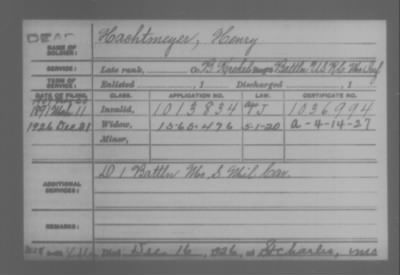 DEAD
NAME OF SOLDIER: Hachtmeyer, Henry
SERVICE: Late rank, Co. B, Krekel's Battln U.S.R.C. Mo. Inf.
TERM OF SERVICE: Enlisted , 1 Discharged , 1
DATE OF FILING. CLASS. APPLICATION NO. LAW. CERTIFICATE NO.
1891 11 Invalid, 1013834 J 1036994
1926 Dec 21 Widow, 1565476 5-1-20 A-4-14-27
Minor,
ADDITIONAL SERVICES: D 1 Battln Mo. S. Mil. Cav.
REMARKS:
Dec. 16, 1926, at St Charles, Mo